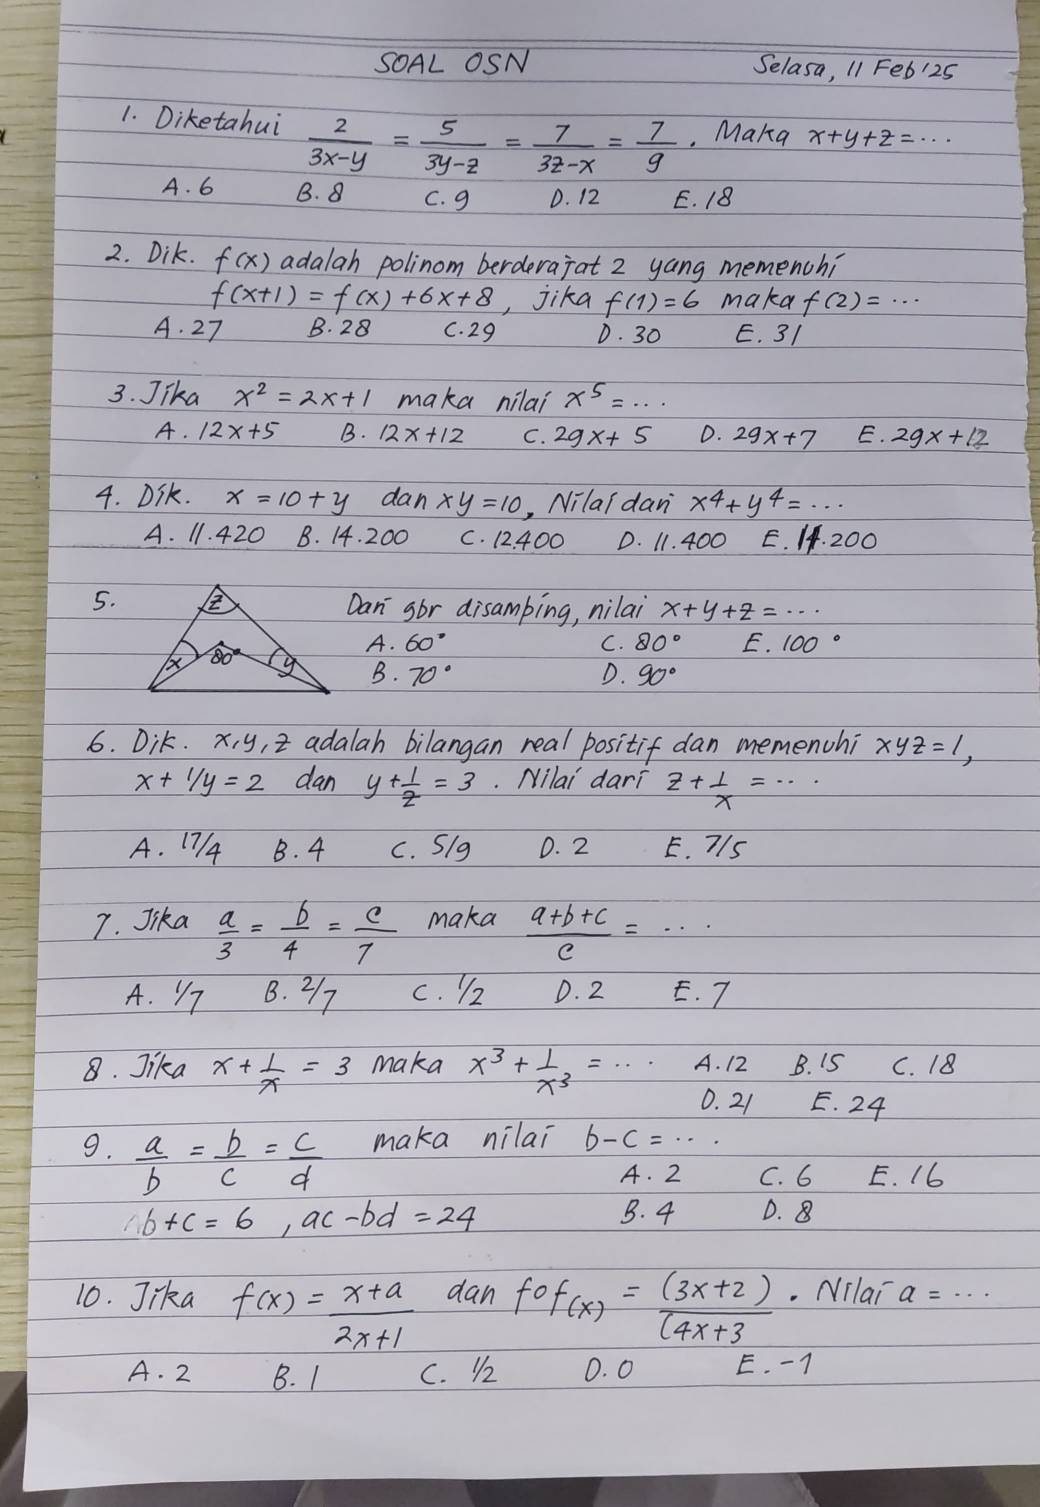 SOAL OSN Selasa, 11 Feb'25
1. Diketahui 2/(3x-y) = 5/(3y-z) = 7/(3z-x) = 7/9. Maka x+y+z = ...
A. 6 B. 8 C. 9 D. 12 E. 18
2. Dik. f(x) adalah polinom berderajat 2 yang memenuhi
f(x+1) = f(x) +6x+8, jika f(1) = 6 maka f(2) = ...
A. 27 B. 28 C. 29 D. 30 E. 31
3. Jika x² = 2x+1 maka nilai x⁵ = ...
A. 12x+5 B. 12x+12 C. 29x+5 D. 29x+7 E. 29x+12
4. Dik. x = 10+y dan xy = 10, Nilai dari x⁴+y⁴ = ...
A. 11.420 B. 14.200 C. 12.400 D. 11.400 E. 11.200
5. z x 80° y Dari gbr disamping, nilai x+y+z = ...
A. 60° C. 80° E. 100°
B. 70° D. 90°
6. Dik. x,y,z adalah bilangan real positif dan memenuhi xyz = 1,
x + 1/y = 2 dan y + 1/z = 3. Nilai dari z + 1/x = ...
A. 17/4 B. 4 C. 5/9 D. 2 E. 7/5
7. Jika a/3 = b/4 = c/7 maka (a+b+c)/c = ...
A. 1/7 B. 2/7 C. 1/2 D. 2 E. 7
8. Jika x + 1/x = 3 maka x³ + 1/x³ = ... A. 12 B. 15 C. 18
D. 21 E. 24
9. a/b = b/c = c/d maka nilai b-c = ...
A. 2 C. 6 E. 16
b+c = 6, ac-bd = 24 B. 4 D. 8
10. Jika f(x) = (x+a)/(2x+1) dan fof(x) = (3x+2)/(4x+3. Nilai a = ...
A. 2 B. 1 C. 1/2 D. 0 E. -1